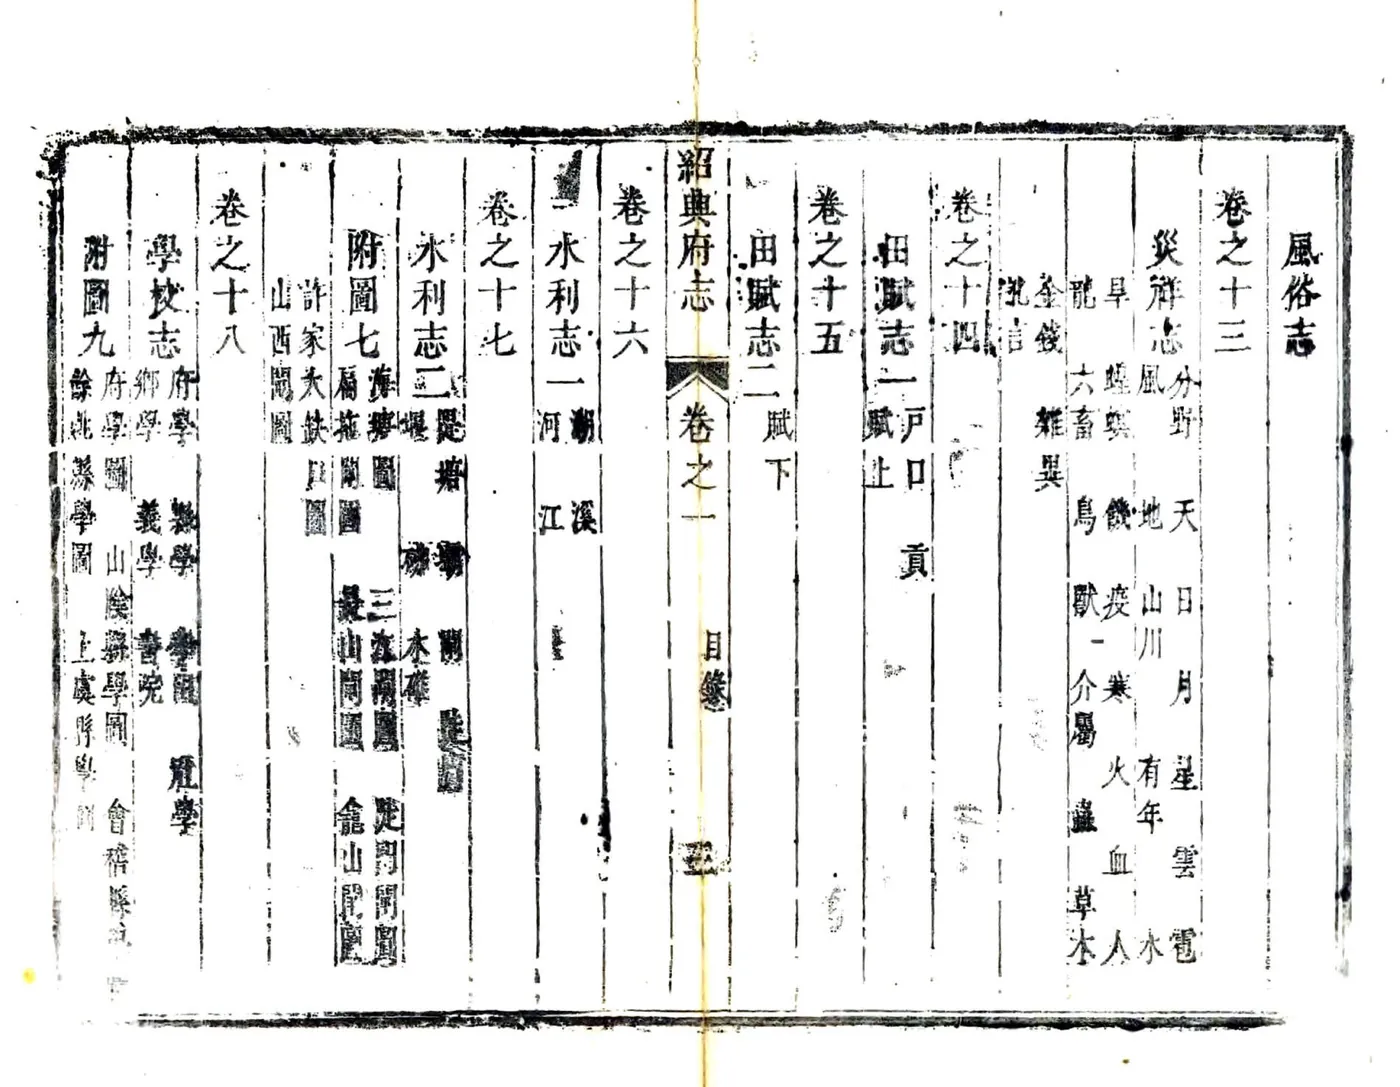 風俗志
卷之十三
災祥志 分野 天 日 月 星 雲 雹
風 地 山川 有年 水
旱 蝗螟 饑 疫 寒 火 血 人
龍 六畜 鳥 獸 介屬 蟲 草木
金錢 雜異
訛言
卷之十四
田賦志一 戶口 貢
賦上
卷之十五
田賦志二 賦下
紹興府志 卷之一 目錄
卷之十六
水利志一 湖 溪
河 江
卷之十七
水利志二 隄塘 壩 閘
堰 水碓
附圖七 海塘圖 三江閘圖
扁拖閘圖 山閘圖 龕山閘圖
許家大缺口圖
山西閘圖
卷之十八
學校志 府學 縣學 學田 社學
鄉學 義學 書院
附圖九 府學圖 山陰縣學圖 會稽縣
餘姚縣學圖 上虞縣學